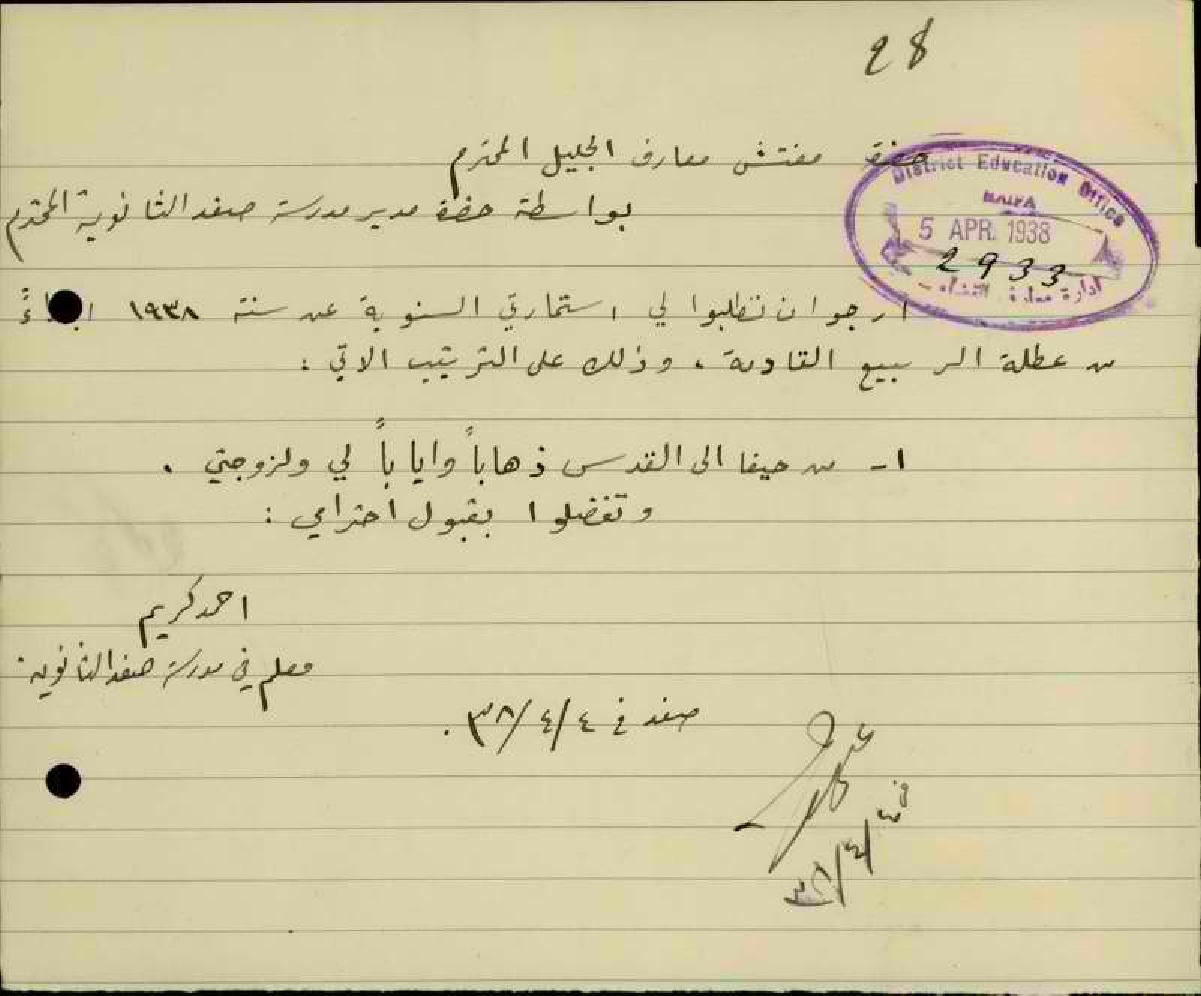 28
حضرة مفتش معارف الجليل المحترم
بواسطة حضرة مدير مدرسة صفد الثانوية المحترم
District Education Office
HAIFA
5 APR. 1938
2933
ارجو ان تطلبوا لي استمارتي السنوية عن سنة ١٩٣٨
من عطلة الربيع القادمة، وذلك على الترتيب الاتي :
١- من حيفا الى القدس ذهاباً واياباً لي ولزوجتي .
وتفضلوا بقبول احترامي :
احمد كريم
معلم في مدرسة صفد الثانوية.
صفد في ٤/٤/٣٨.
في ٤/٤/٣٨